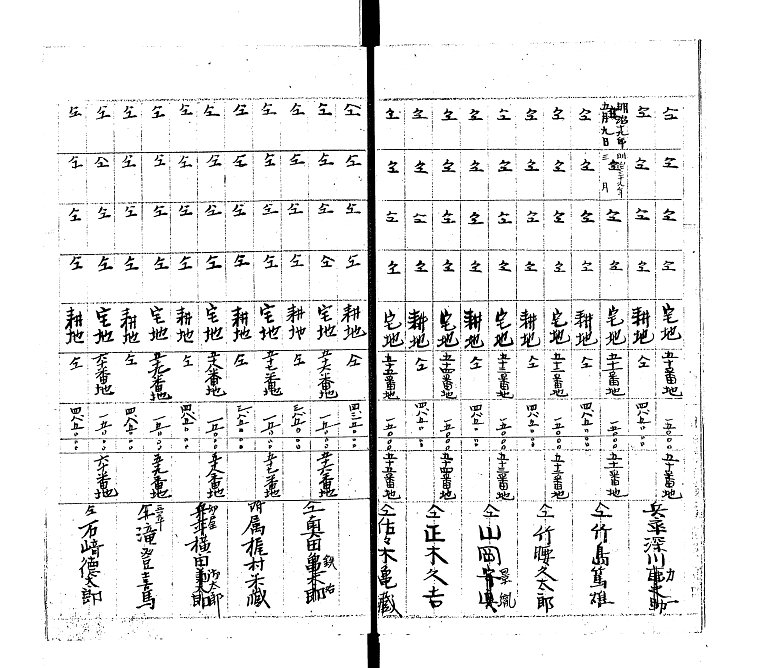 仝 仝 仝 仝 宅地 五十番地 一五〇〇〇 五十番地 兵卒 深川亀之助 力一
仝 仝 仝 仝 耕地 仝 四八五〇〇〇
明治九年五月九日 仝 仝 仝 宅地 五十一番地 一五〇〇〇 五十一番地 仝 竹島篤雄
仝 仝 仝 仝 耕地 仝 四八五〇〇〇
仝 仝 仝 仝 宅地 五十二番地 一五〇〇〇 五十二番地 仝 竹腰久太郎
仝 仝 仝 仝 耕地 仝 四八五〇〇〇
仝 仝 仝 仝 宅地 五十三番地 一五〇〇〇 五十三番地 仝 山岡 景胤
仝 仝 仝 仝 耕地 仝 四八五〇〇〇
仝 仝 仝 仝 宅地 五十四番地 一五〇〇〇 五十四番地 仝 正木久吉
仝 仝 仝 仝 耕地 仝 四八五〇〇〇
仝 仝 仝 仝 宅地 五十五番地 一五〇〇〇 五十五番地 仝 佐々木亀蔵
仝 仝 仝 仝 耕地 仝 四三五〇〇〇
仝 仝 仝 仝 宅地 五十六番地 一五〇〇〇 五十六番地 仝 奥田亀
仝 仝 仝 仝 耕地 仝 三八五〇〇〇
仝 仝 仝 仝 宅地 五十七番地 一五〇〇〇 五十七番地 附属 梶村米蔵
仝 仝 仝 仝 耕地 仝 三八五〇〇〇
仝 仝 仝 仝 宅地 五十八番地 一五〇〇〇 五十八番地 横田
仝 仝 仝 仝 耕地 仝 四八五〇〇〇
仝 仝 仝 仝 宅地 五十九番地 一五〇〇〇 五十九番地 滝登喜馬
仝 仝 仝 仝 耕地 仝 四八五〇〇〇
仝 仝 仝 仝 宅地 六十番地 一五〇〇〇 六十番地 仝 石崎徳太郎
仝 仝 仝 仝 耕地 仝 四八五〇〇〇